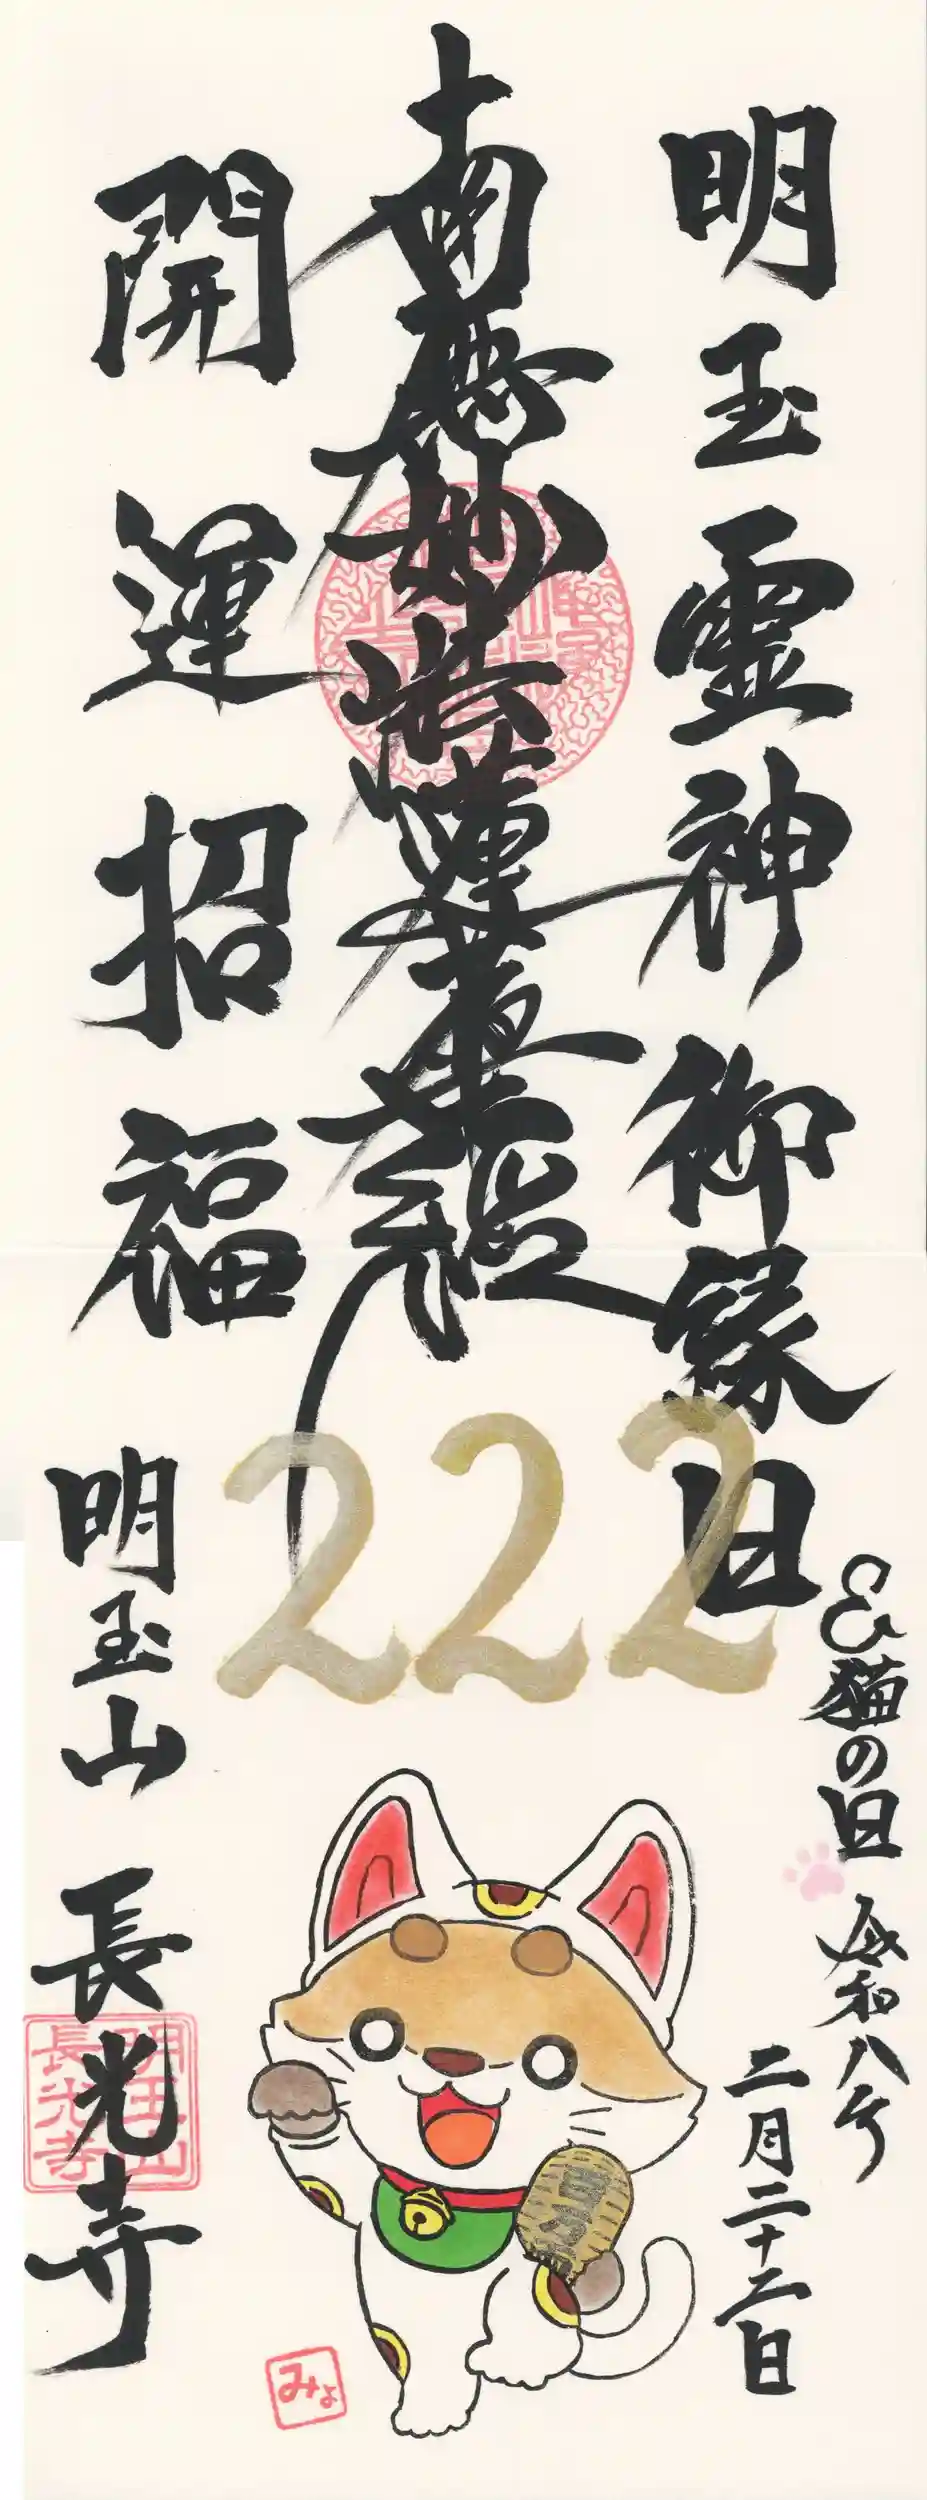 明玉霊神御縁日
&猫の日
令和八年
二月二十二日
南無妙法蓮華経
222
開運招福
明玉山 長光寺
明玉山
長光寺
みょ